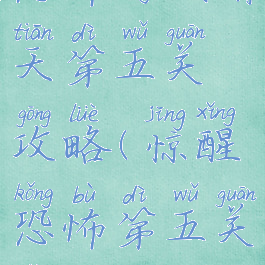 tiān dì wǔ guān
天第五关
gōng lüè jīng xǐng
攻略(惊醒
kǒng bù dì wǔ guān
恐怖第五关